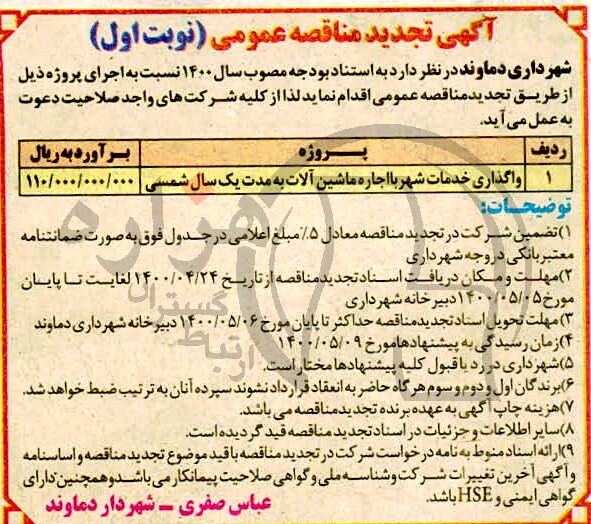 آگهی تجدید مناقصه عمومی (نوبت اول)
شهرداری دماوند در نظر دارد به استناد بودجه مصوب سال ۱۴۰۰ نسبت به اجرای پروژه ذیل
از طریق تجدید مناقصه عمومی اقدام نماید لذا از کلیه شرکت های واجد صلاحیت دعوت
به عمل می آید.
ردیف پروژه برآورد به ریال
۱ واگذاری خدمات شهر با اجاره ماشین آلات به مدت یک سال شمسی ۱۱۰/۰۰۰/۰۰۰/۰۰۰
توضیحات:
۱)تضمین شرکت در تجدید مناقصه معادل ۵٪ مبلغ اعلامی در جدول فوق به صورت ضمانتنامه
معتبر بانکی در وجه شهرداری
۲)مهلت و مکان دریافت اسناد تجدید مناقصه از تاریخ ۱۴۰۰/۰۴/۲۴ لغایت تا پایان
مورخ ۱۴۰۰/۰۵/۰۵ دبیرخانه شهرداری
۳)مهلت تحویل اسناد تجدید مناقصه حداکثر تا پایان مورخ ۱۴۰۰/۰۵/۰۶ دبیرخانه شهرداری دماوند
۴)زمان رسیدگی به پیشنهادها مورخ ۱۴۰۰/۰۵/۰۹
۵)شهرداری در رد یا قبول کلیه پیشنهادها مختار است.
۶)برندگان اول و دوم و سوم هرگاه حاضر به انعقاد قرارداد نشوند سپرده آنان به ترتیب ضبط خواهد شد.
۷)هزینه چاپ آگهی به عهده برنده تجدید مناقصه می باشد.
۸)سایر اطلاعات و جزئیات در اسناد تجدید مناقصه قید گردیده است.
۹)ارائه اسناد منوط به نامه درخواست شرکت در تجدید مناقصه با قید موضوع تجدید مناقصه و اساسنامه
و آگهی آخرین تغییرات شرکت و شناسه ملی و گواهی صلاحیت پیمانکار می باشد و همچنین دارای
گواهی ایمنی و HSE باشد.
عباس صفری - شهردار دماوند
هزاره
گستران
ارتباط